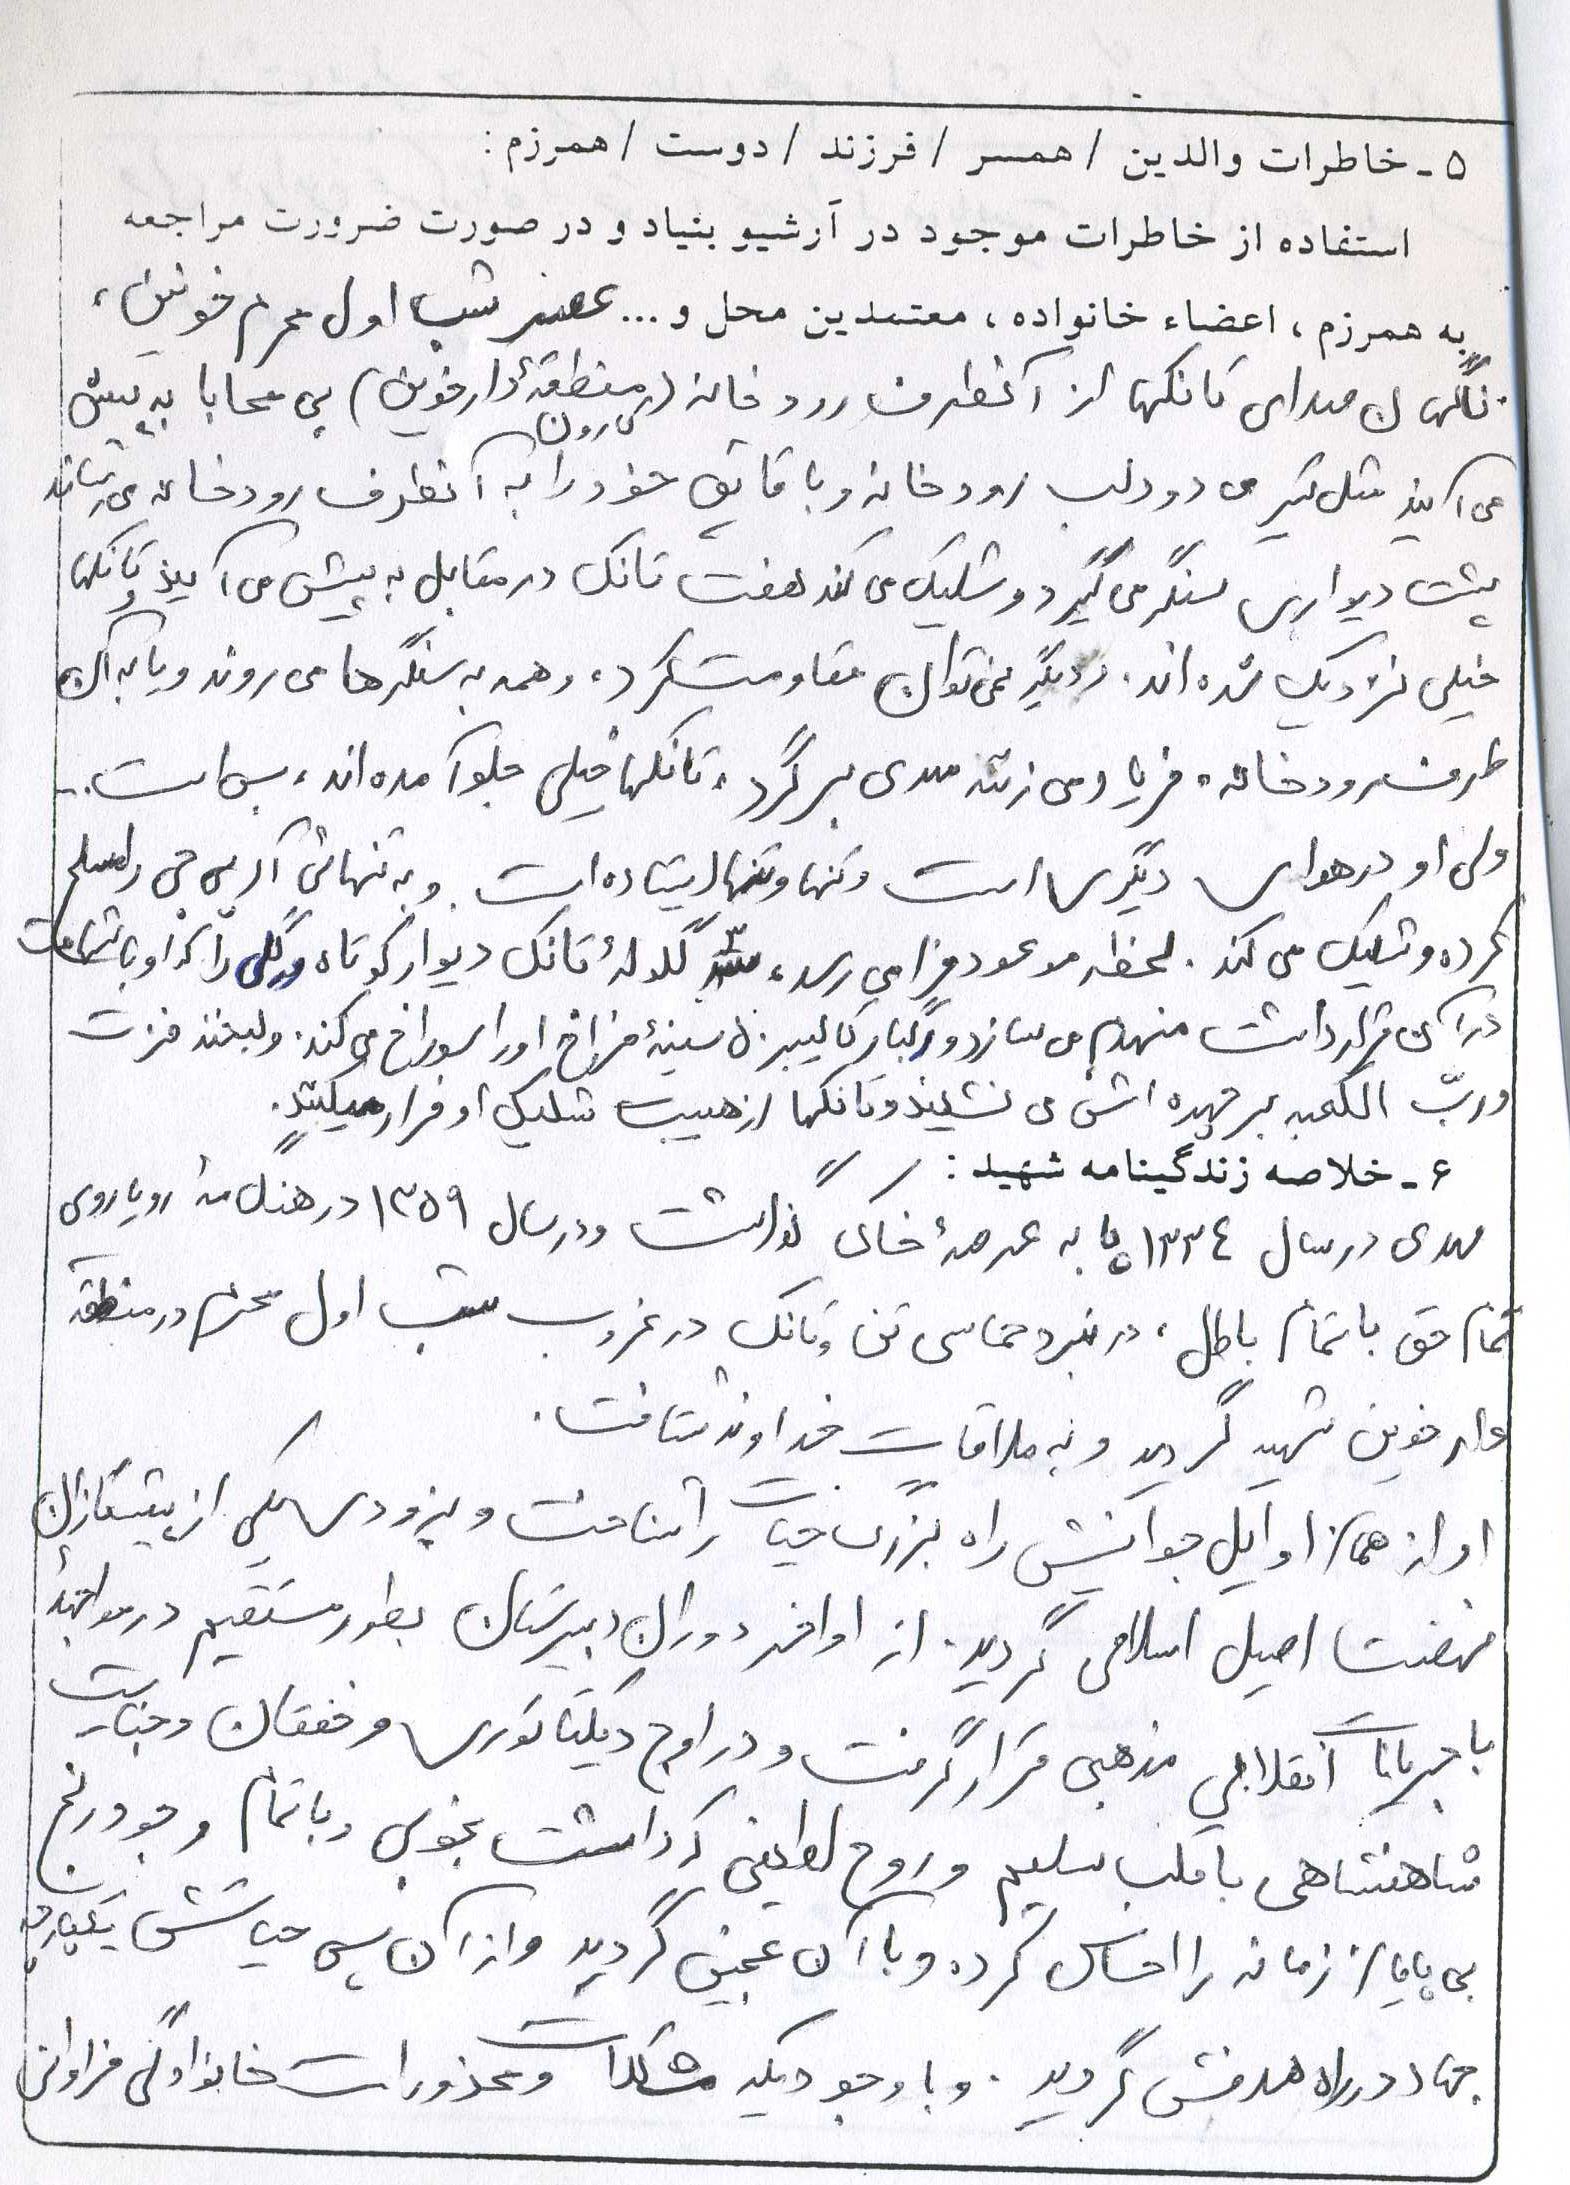 ۵ - خاطرات والدین / همسر / فرزند / دوست / همرزم :
استفاده از خاطرات موجود در آرشیو بنیاد و در صورت ضرورت مراجعه
به همرزم ، اعضاء خانواده ، معتمدین محل و ... عصر شب اول محرم خونین ،
ناگهان صدای تانکها از آنطرف رودخانه (در منطقهٔ دارخوین) بی محابا به پیش
کارون
می آیند مثل تیر می دود لب رودخانه و با قایق خود را به آنطرف رودخانه می رساند
پشت دیواری سنگر می گیرد و شلیک می کند هفت تانک در مقابل به پیش می آیند و تانکها
خیلی نزدیک شده اند. دیگر نمی توان مقاومت کرد ، همه به سنگرها می روند و یا به آن
طرف رودخانه . فریاد می زنند مهدی برگرد ، تانکها خیلی جلو آمده اند ، بس است ...
ولی او در هوای دیگری است و تنها و تنها ایستاده است و به تنهائی آر پی جی را مسلح
کرده و شلیک می کند . لحظه موعود فرا می رسد ، گلولهٔ تانک دیوار کوتاه و گلی را که او با شهامت
در آن قرار داشت منهدم می سازد و رگبار کالیبر ۵۰ سینهٔ فراخ او را سوراخ می کند . و لبخند فزت
و ربّ الکعبه بر چهره اش می نشیند و تانکها از هیبت شلیک او فرار میکنند .
۶ - خلاصه زندگینامه شهید :
مهدی در سال ۱۳۳۴ پا به عرصهٔ خاکی گذاشت و در سال ۱۳۵۹ در هنگامهٔ رویاروی
تمام حق با تمام باطل ، در نبرد حماسی تن و تانک در غروب شب اول محرم در منطقه
دارخوین شهید گردید و به ملاقات خداوند شتافت .
او از همان اوایل جوانیش راه بزرگ حیات را شناخت و بزودی یکی از پیشتازان
نهضت اصیل اسلامی گردید . از اواخر دوران دبیرستان بطور مستقیم در مواجههٔ
با جریانات انقلابی مذهبی قرار گرفت و در اوج دیکتاتوری و خفقان و جنایت
شاهنشاهی با قلب سلیم و روح لطیفی که داشت بخوبی و با تمام وجود رنج
بی پایان زمانه را احساس کرده و با آن عجین گردید و از آن پس حیاتش یکپارچه
جهاد در راه هدفش گردید . و با وجودیکه مشکلات و محذورات خانوادگی فراوانی